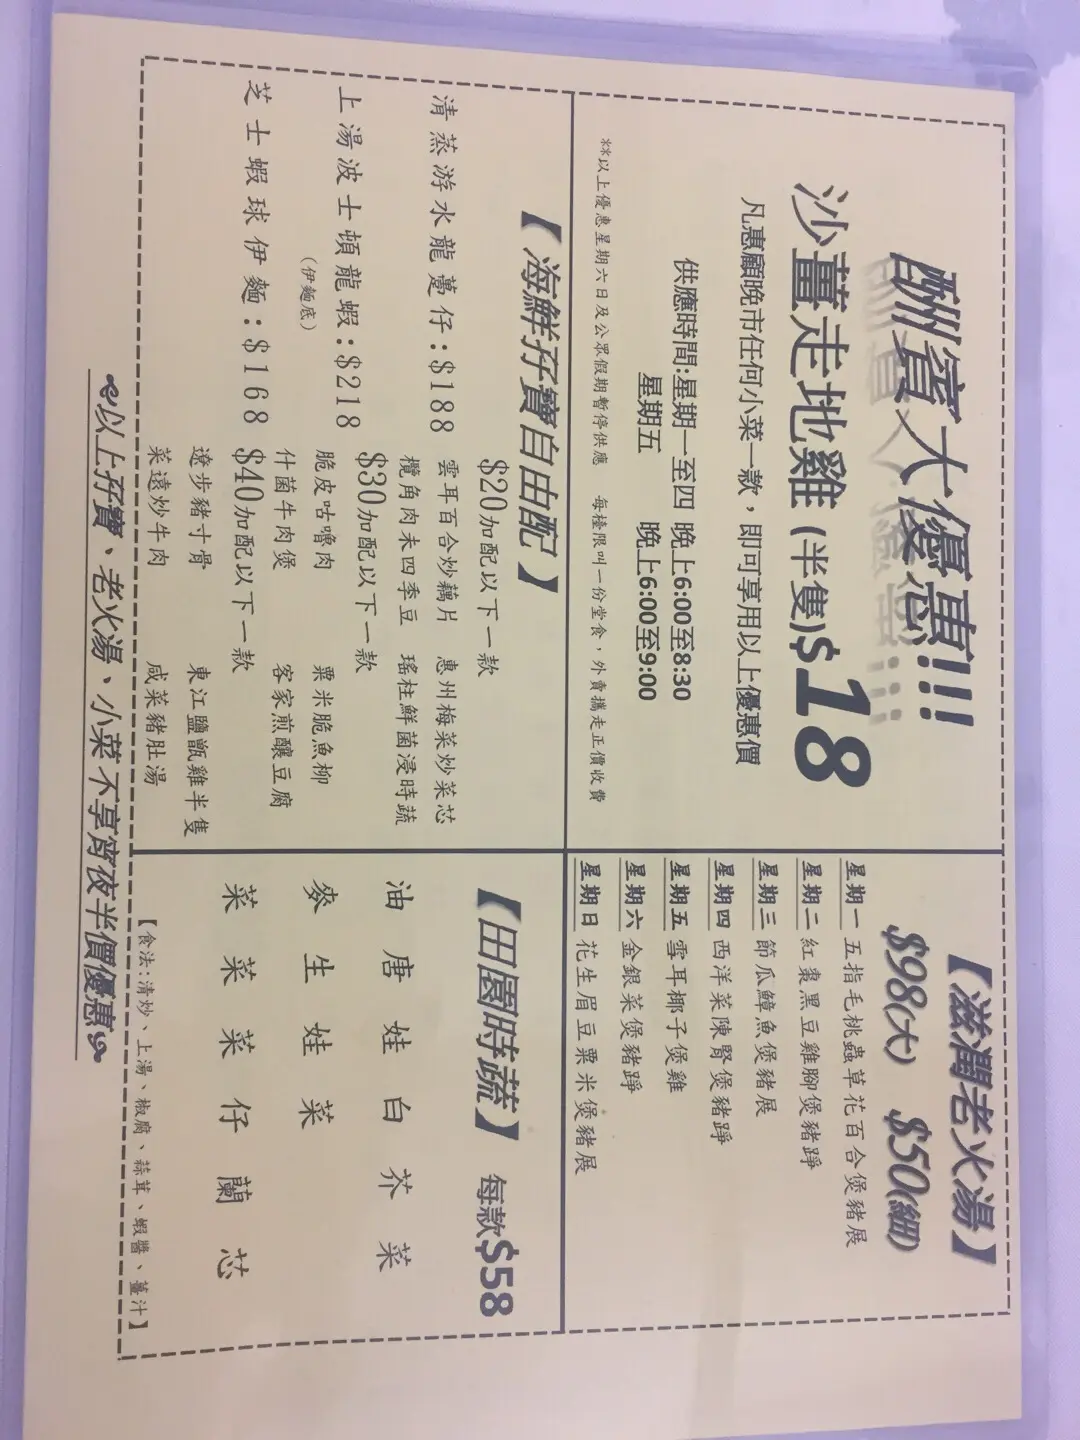 酬賓大優惠!!!
沙薑走地雞 (半隻)$18
凡惠顧晚市任何小菜一款，即可享用以上優惠價
供應時間:星期一至四 晚上6:00至8:30
星期五 晚上6:00至9:00
**以上優惠星期六日及公眾假期暫停供應 每檯限叫一份堂食，外賣攜走正價收費
【滋潤老火湯】
$98(大) $50(細)
星期一 五指毛桃蟲草花百合煲豬展
星期二 紅棗黑豆雞腳煲豬踭
星期三 節瓜鱆魚煲豬展
星期四 西洋菜陳腎煲豬踭
星期五 雪耳椰子煲雞
星期六 金銀菜煲豬踭
星期日 花生眉豆粟米煲豬展
【海鮮孖寶自由配】
清蒸游水龍躉仔:$188
上湯波士頓龍蝦:$218
(伊麵底)
芝士蝦球伊麵:$168
$20加配以下一款
雲耳百合炒藕片 惠州梅菜炒菜芯
欖角肉未四季豆 瑤柱鮮菌浸時蔬
$30加配以下一款
脆皮咕嚕肉 粟米脆魚柳
什菌牛肉煲 客家煎釀豆腐
$40加配以下一款
遼步豬寸骨 東江鹽甑雞半隻
菜遠炒牛肉 咸菜豬肚湯
【田園時蔬】 每款$58
油 唐 娃 白 芥 菜
麥 生 娃 菜
菜 菜 菜 仔 蘭 芯
【食法:清炒、上湯、椒腐、蒜茸、蝦醬、薑汁】
以上孖寶、老火湯、小菜不享宵夜半價優惠